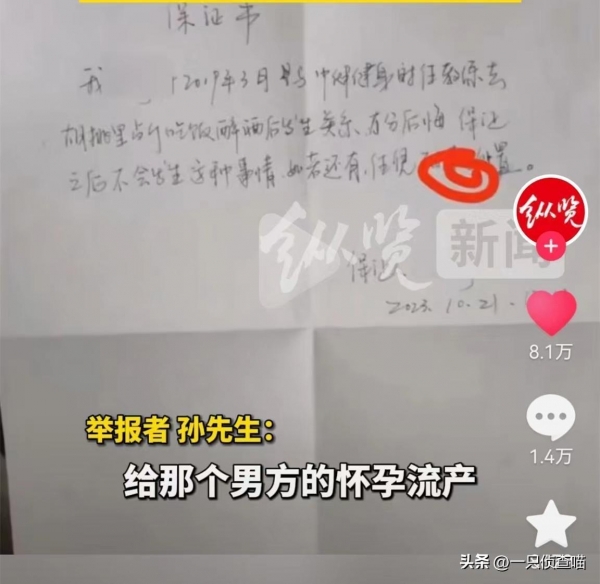 保证书
我 于2019年3月
胡桃里 吃饭醉酒后发生关系、万分后悔 保证
之后不会发生这种事情、如若还有、任凭 处置。
保证人
2023.10.21.
纵览新闻
纵览
8.1万
1.4万
举报者 孙先生：
给那个男方的怀孕流产
头条 @一只侦查喵